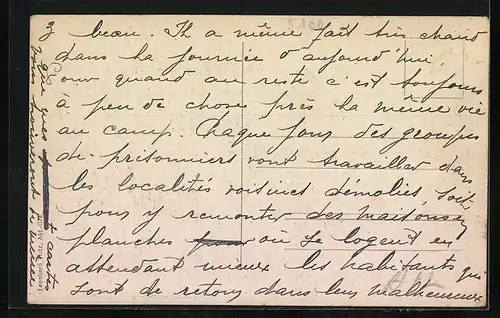 3 beau. Il a même fait très chaud
dans la journée d'aujourd'hui.
Pour quand au reste c'est toujours
à peu de chose près la même vie
au camp. Chaque jour des groupes
de prisonniers vont travailler dans
les localités voisines démolies, soit
pour y remonter des maisons en
planches où se logent en
attendant mieux les habitants qui
sont de retour dans leur malheureux
que ques cartes
vous trouveront de même